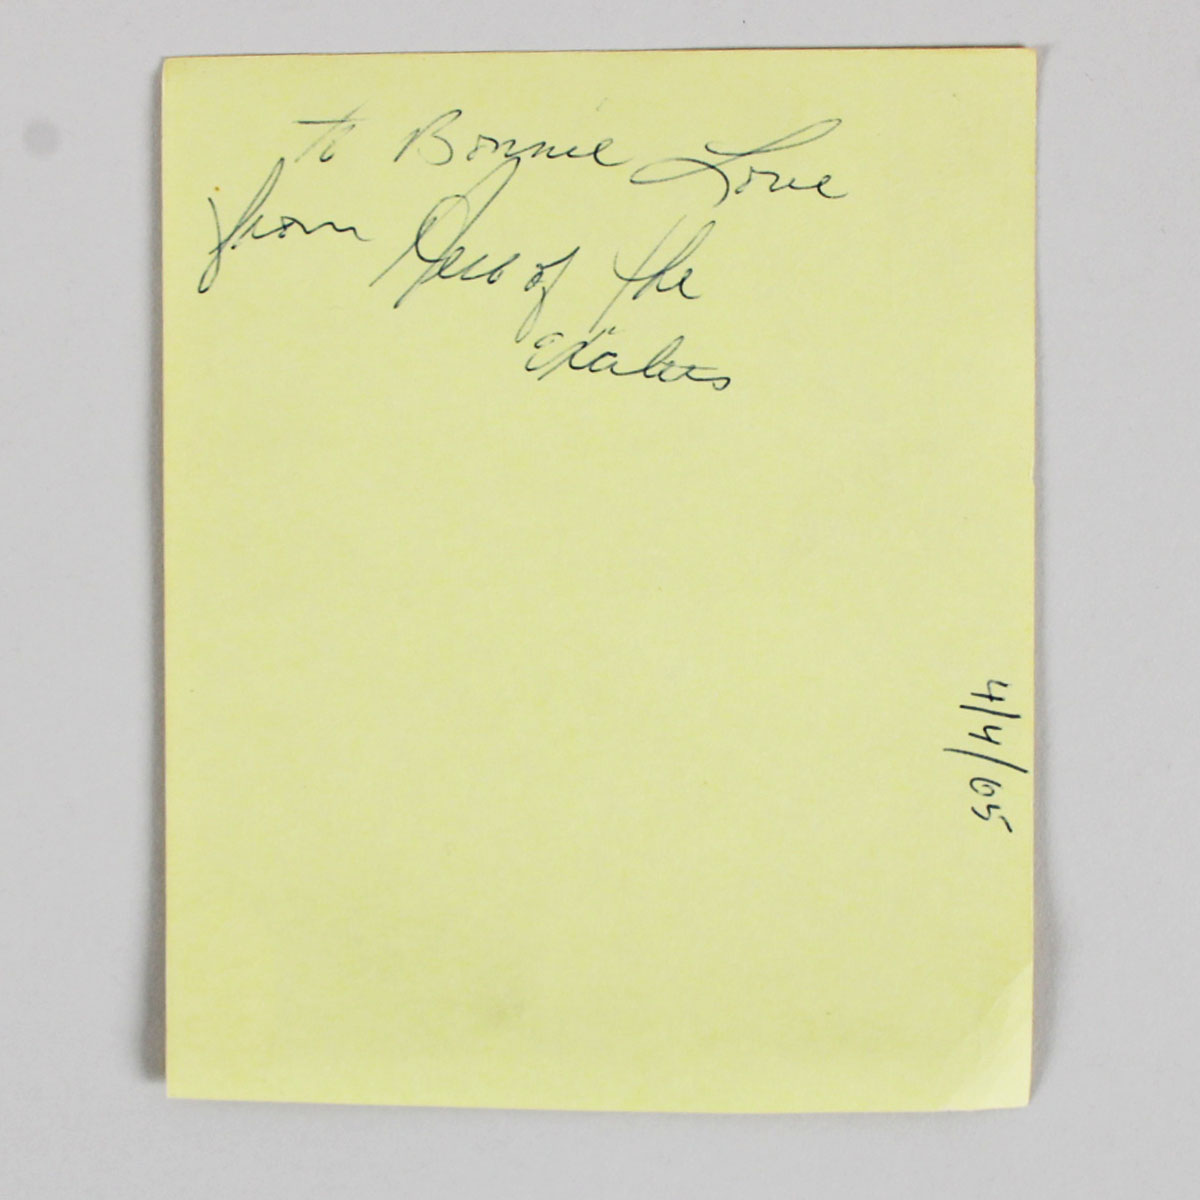 to Bonnie Love
from of the
4/4/65